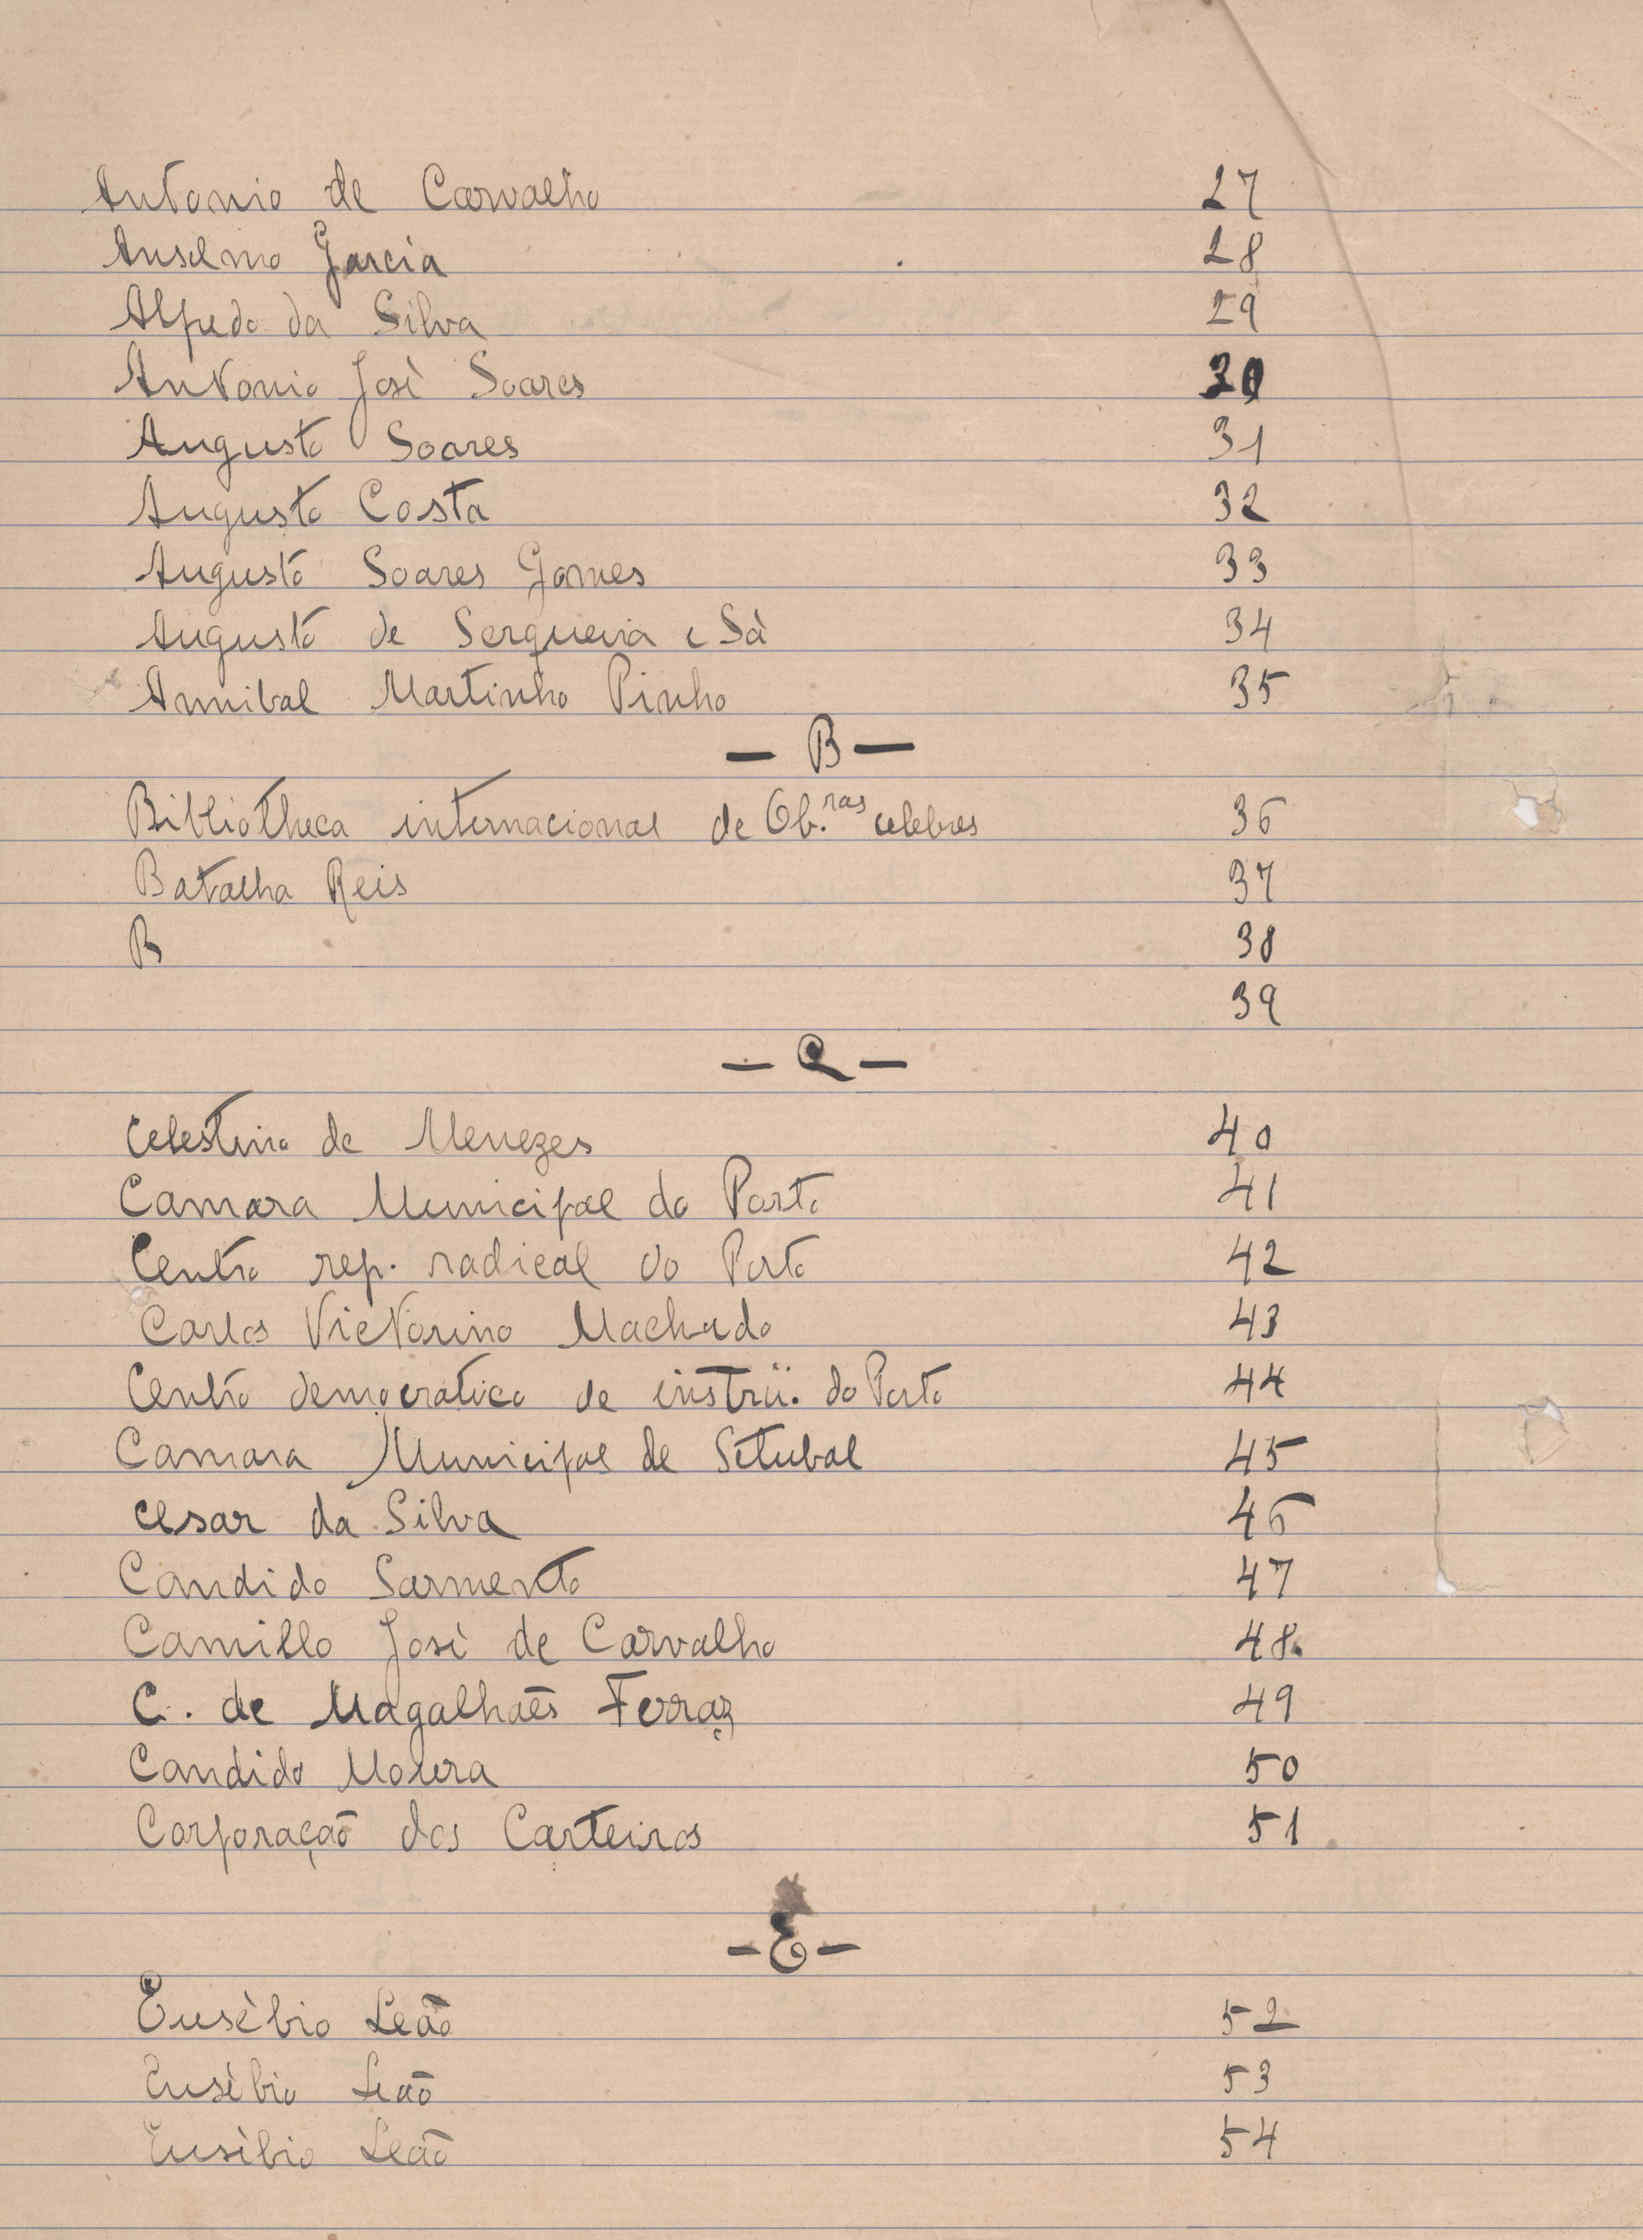 Antonio de Carvalho 27
Anselmo Garcia 28
Alfredo da Silva 29
Antonio Josè Soares 30
Augusto Soares 31
Augusto Costa 32
Augusto Soares Gomes 33
Augusto de Serqueira e Sà 34
Annibal Martinho Pinho 35
— B —
Bibliotheca internacional de Ob.ras celebres 36
Batalha Reis 37
B 38
39
— C —
Celestino de Menezes 40
Camara Municipal do Porto 41
Centro rep. radical do Porto 42
Carlos Victorino Machado 43
Centro democratico de instrü. do Porto 44
Camara Municipal de Setubal 45
Cesar da Silva 46
Candido Sarmento 47
Camillo Josè de Carvalho 48.
C. de Magalhaês Ferraz 49
Candido 50
Corporaçaõ dos Carteiros 51
- E -
Eusèbio Leaõ 52
Eusèbio Leaõ 53
Eusèbio Leaõ 54